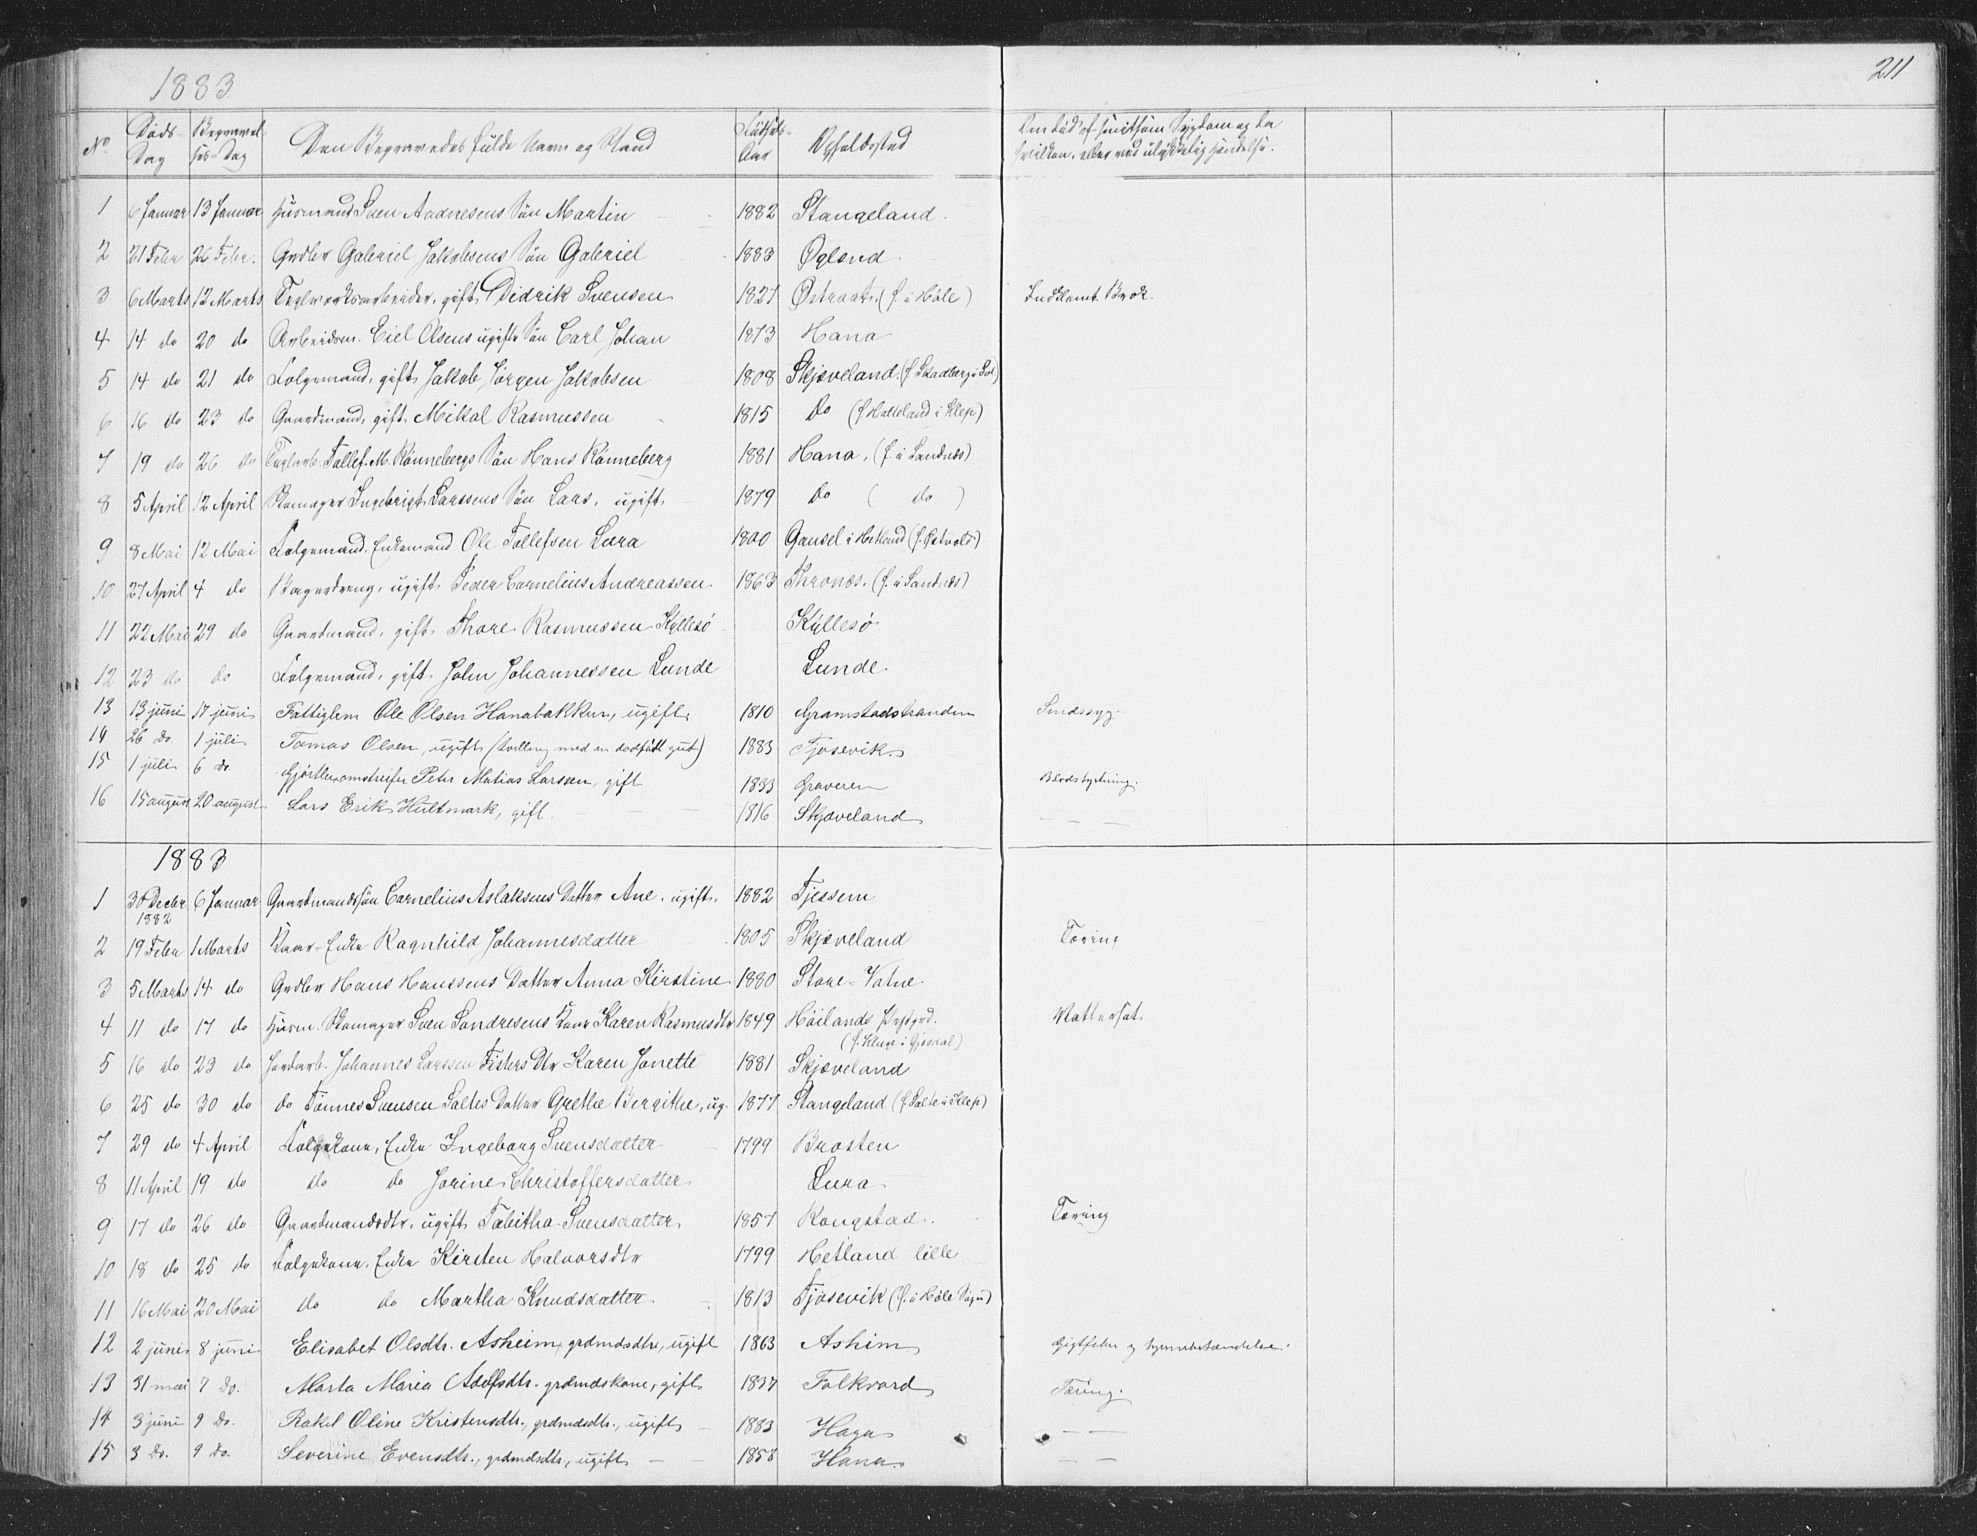 211
1883
No Døds-Dag Begravel-ses-Dag Den Begravedes fulde Navn og Stand Fødsels-Aar Opholdssted Om død af smitsom Sygdom og da
hvilken, eller ved ulykkelig Hændelse.
1 6 Januar 13 Januar Husmand Sven Aadnesens Søn Martin 1882 Stangeland.
2 21 Febr 26 Febr. Grdbr Gabriel Jakobsens Søn Gabriel 1883 Øglend
3 6 Marts 12 Marts Teglværksarbeider, gift Didrik Svensen 1827 Østraat. (f. i Høle) Indklemt Brok.
4 14 do 20 do Arbeidsm. Eiel Olsens ugifte Søn Carl Johan 1873 Hana
5 14 do 21 do Folgemand, gift Jakob Jørgen Jakobsen 1808 Skjæveland. (f. Skadberg i Sol)
6 16 do 23 do Gaardmand, gift Mikal Rasmussen 1815 do (f. Hatteland i Klep)
7 19 do 26 do Teglarb. Tollef M. Rønnebergs Søn Hans Rønneberg 1881 Hana. (f. i Sandnæs)
8 5 April 12 April Skomager Ingebrigt Larssens Søn Lars, ugift 1879 do ( do )
9 8 Mai 12 Mai Folgemand, Enkemand Ole Tollefsen Lura 1800 Gausel i Hetland (f. Østvold)
10 27 April 4 do Bagerdreng, ugift Peder Cornelius Andreassen 1863 Thronæs. (f. i Sandnæs)
11 22 Mai 29 do Gaardmand, gift Thore Rasmussen Kyllesø Kyllesø
12 23 do do Folgemand, gift. John Johannessen Lunde Lunde.
13 13 juni 17 juni Fattiglem Ole Olsen Hanabakken, ugift 1810 Gramstadstranden Sindssyg
14 26 do. 1 juli Tomas Olsen, ugift (tvilling med en dødfødt gut) 1883 Tjosevik
15 1 juli 6 do. Gjørtler, omstreifer Peter Matias Larsen, gift 1833 Graveren Blodstyrtning.
16 15 august 20 august Lars Erik Hultmark, gift 1816 Skjæveland — — —
1883
1 30 Decbr 6 Januar Gaardmandssøn Cornelius Aslaksens Datter Ane, ugift. 1882 Tjessem
1882
2 19 Febr 1 Marts Kaar-Enke Ragnhild Johannesdatter 1805 Skjæveland Tæring
3 5 Marts 14 do Grdbr Hans Hanssens Datter Anna Kirstine 1880 Store-Vatne
4 11 do 17 do Husm. Skomager Sven Sondresens Kone Karen Rasmusdtr 1849 Høilands Prestgrd.
(f. Kluge i Gjesdal)
5 16 do 23 do Jordarb. Johannes Larssen Fisters Dtr Karen Jonette 1881 Skjæveland
6 25 do 30 do do Tønnes Svensen Saltes Datter Grethe Bergithe, ug. 1877 Stangeland (f. Salte i Klep)
7 29 do 4 April Folgekone, Enke Ingeborg Svensdatter 1799 Brosten
8 11 April 19 do do do Jorine Christoffersdatter Lura
9 17 do 26 do Gaardmandsdtr. ugift Tabitha Svensdatter 1857 Rongstad. Tæring
10 18 do 25 do Folgekone, Enke Kirsten Halvorsdtr 1799 Hetland lille
11 16 Mai 20 Mai do do Martha Knudsdatter 1813 Tjosevik (f. i Høle Sogn)
12 2 juni 8 juni Elisabet Olsdtr. Asheim, grdmdsdtr., ugift 1863 Asheim Gigtfeber og hjernebetændelse.
13 31 mai 7 do. Marta Maria Adofsdtr. grdmdskone, gift 1837 Folkvord Tæring.
14 3 juni 9 do. Rakel Oline Kristensdtr., grdmdsdtr., ugift 1883 Hana — —
15 3 do. 9 do. Severine Evensdtr., grdmdsdtr., ugift 1858 Hana — —